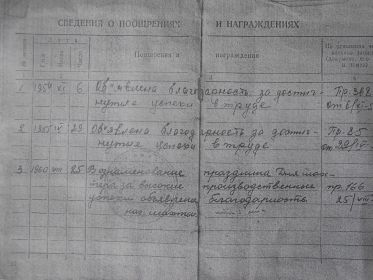 СВЕДЕНИЯ О ПООЩРЕНИЯХ И НАГРАЖДЕНИЯХ
Поощрения и награждения
1 1954 XI 6 Объявлена благодарность за достиг-
нутые успехи в труде
Пр. 382
от 6/XI-5
2 29 Объявлена благодарность за достиг-
нутые успехи в труде
Пр. 85
от
3 1960 VIII 25 В ознаменование праздника Дня шах-
тера за высокие производственные
успехи объявлена благодарность
пр. 166
25/VIII